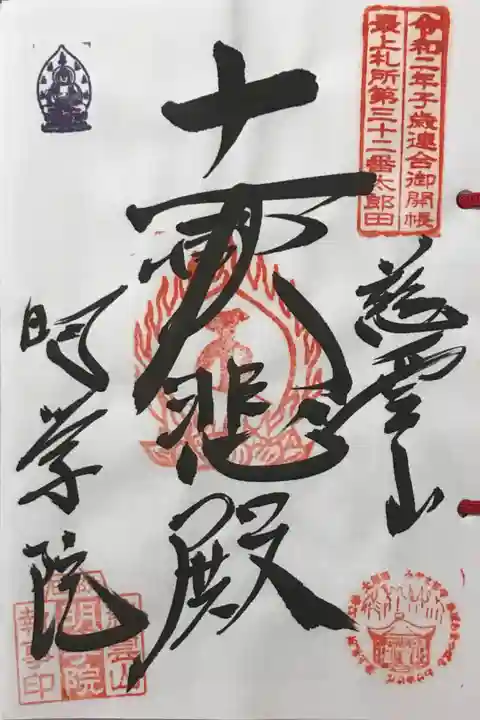 令和二年子歳連合御開帳
最上札所第三十二番太郎田
慈雲山
十一面大悲殿
明学院
明学院
執事印